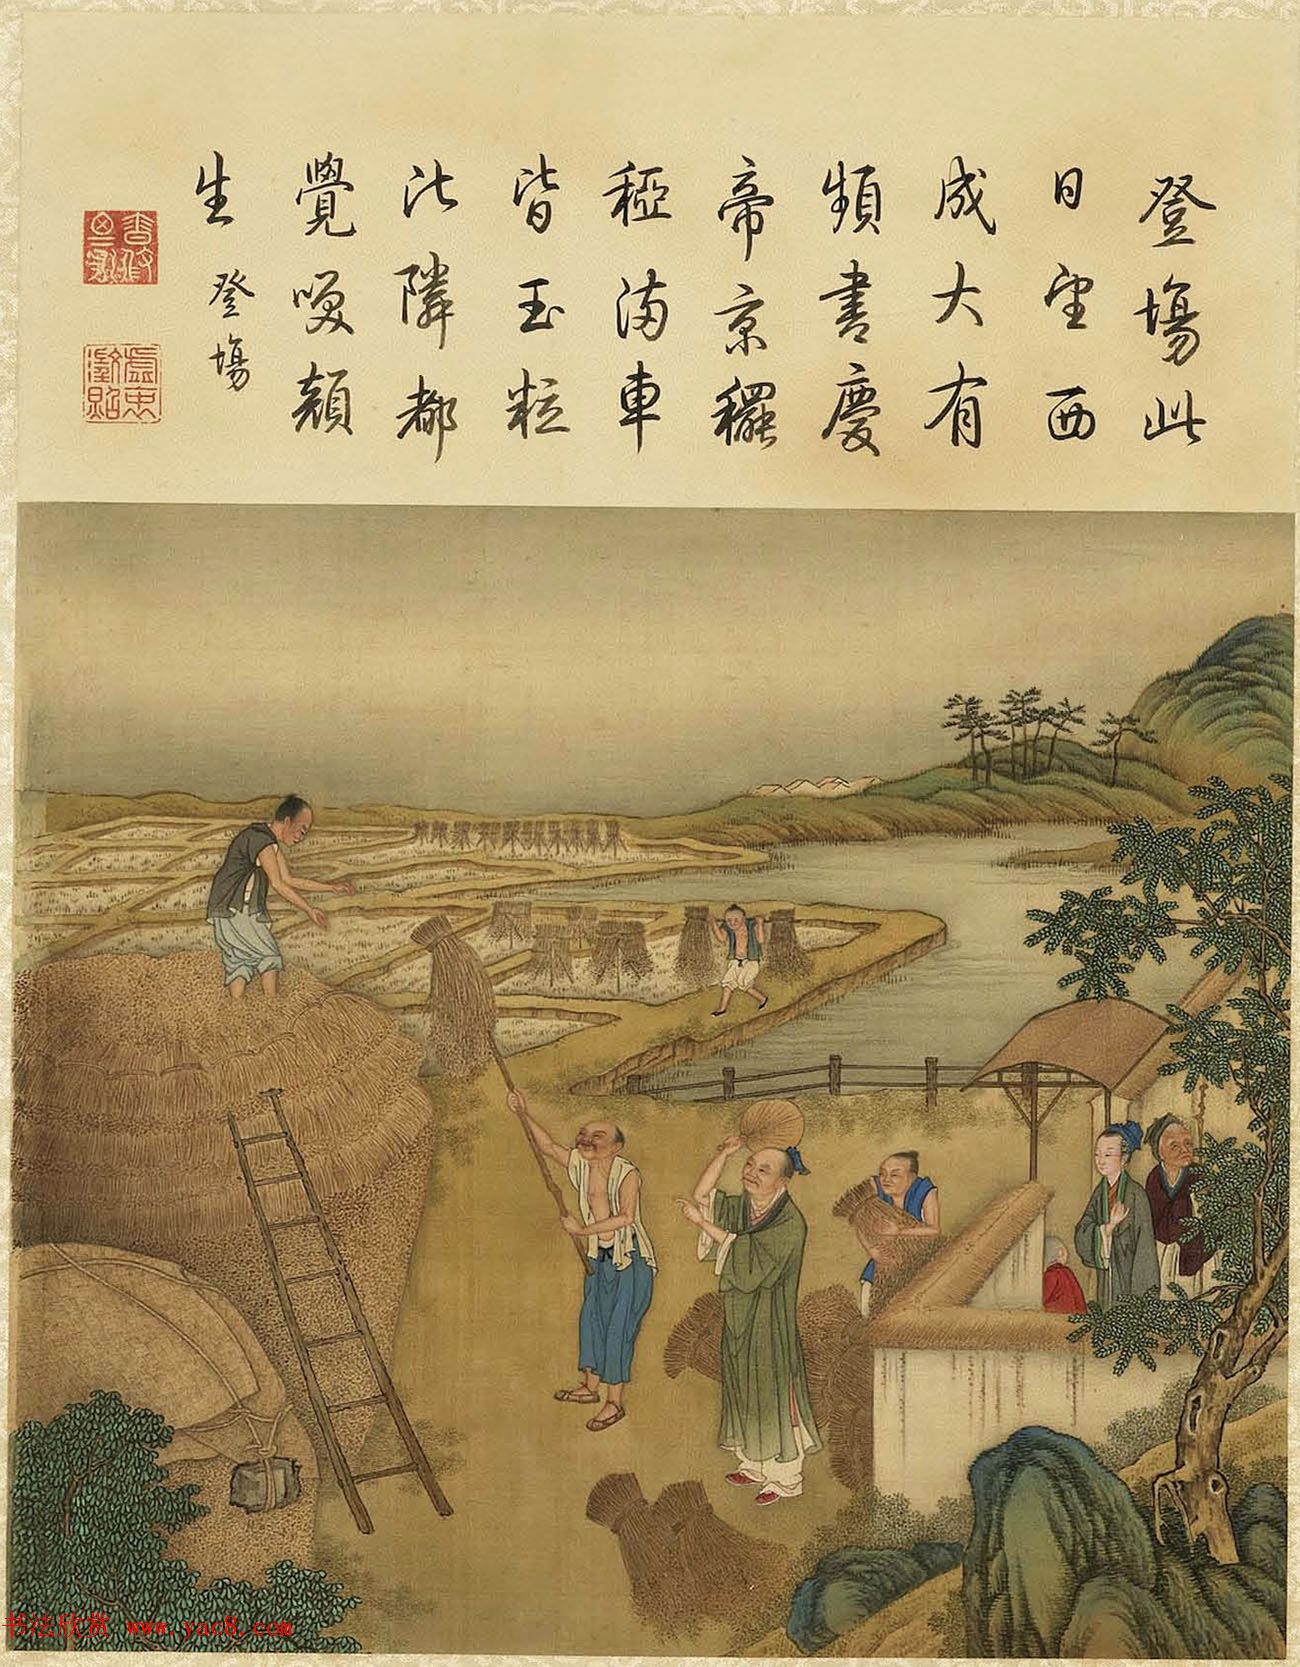 登場此
日望西
成大有
頻書慶
帝京穲
稏滿車
皆玉粒
比隣都
覺喚顔
生
登場
书法欣赏 www.yac8.com